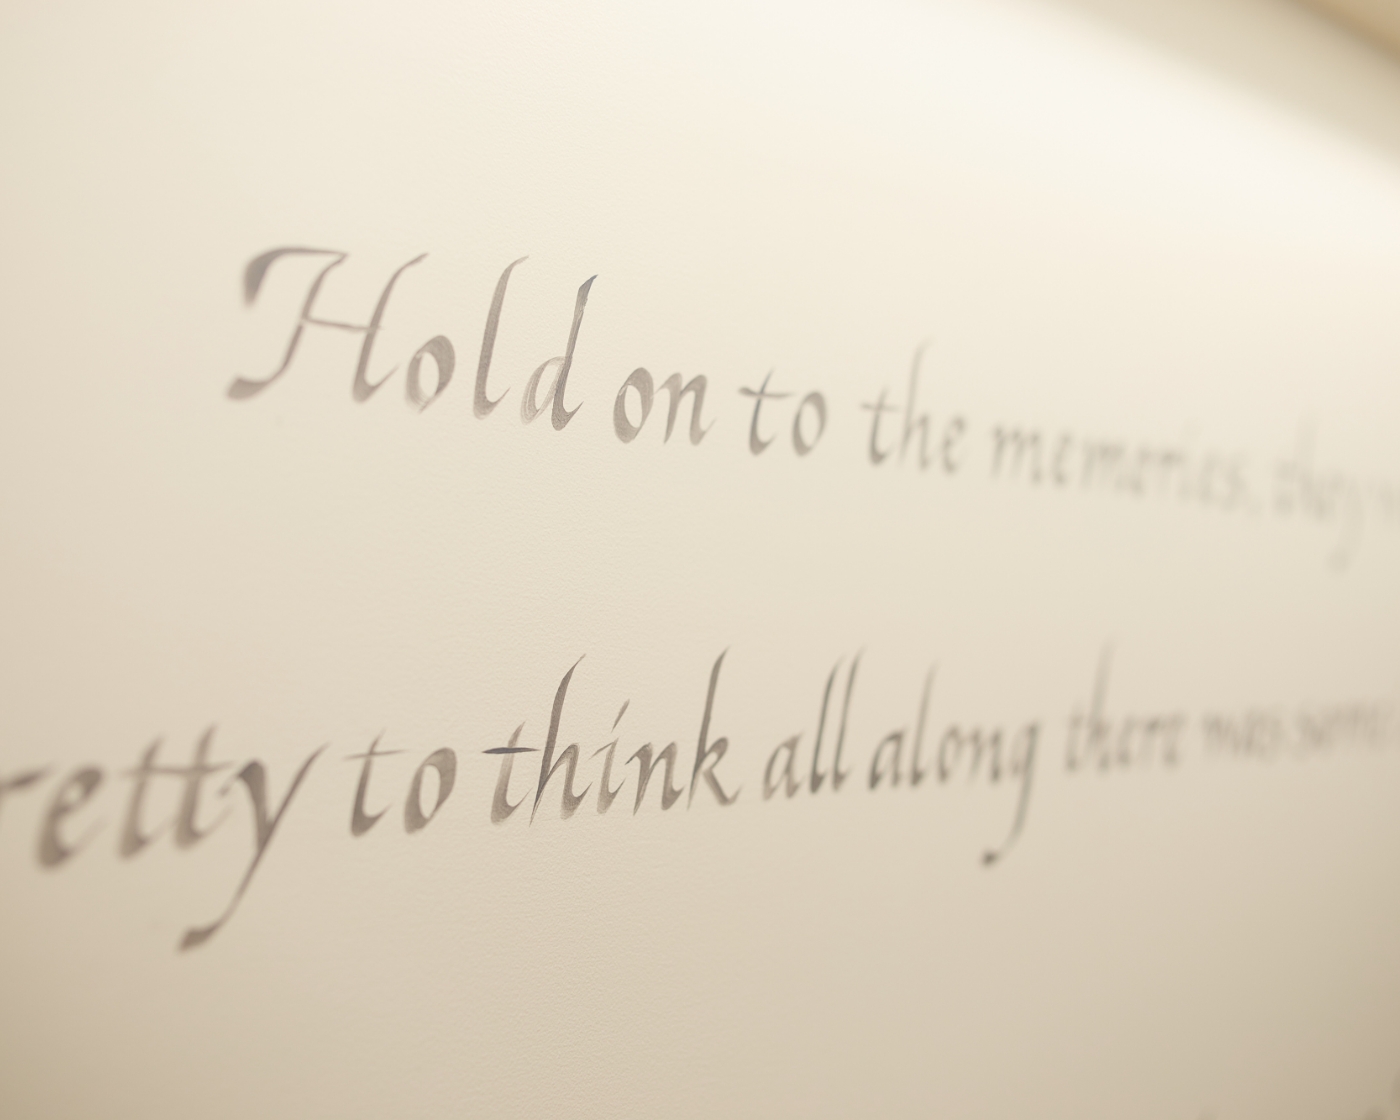 Hold on to the memories, they
retty to think all along there was some